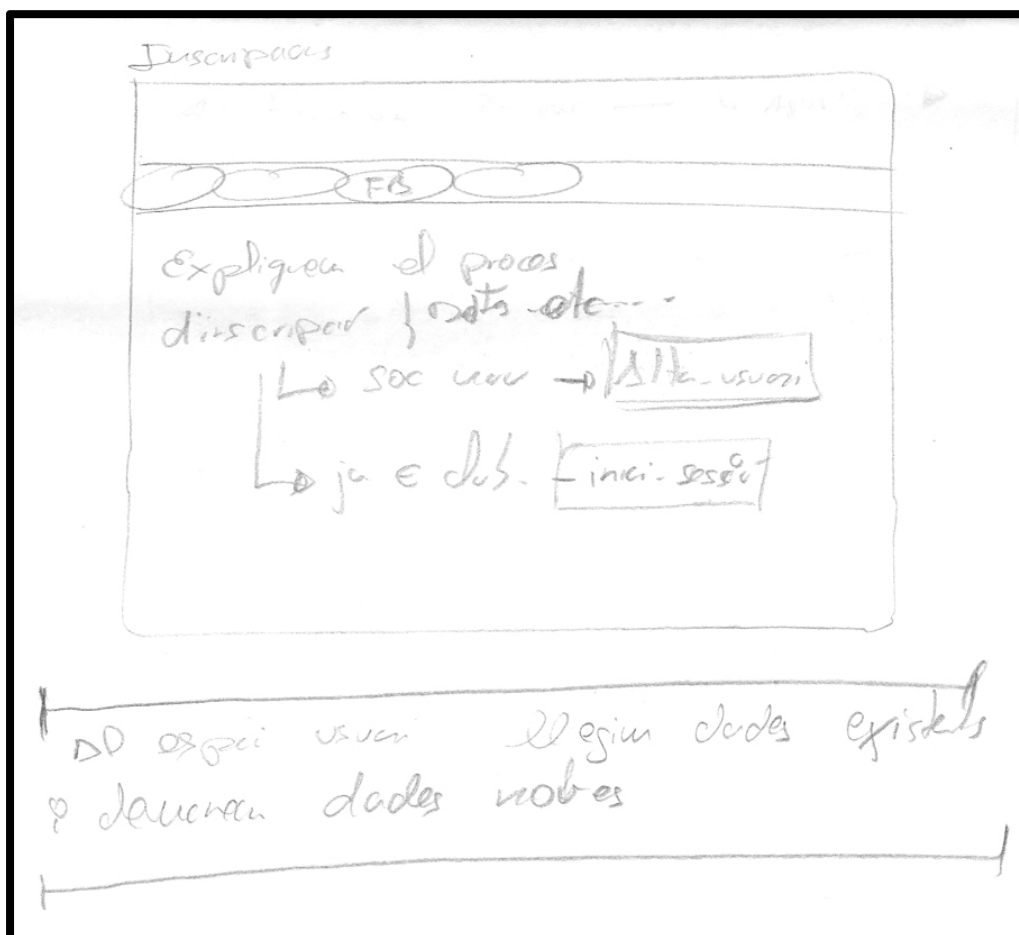 Inscripcions
FB
Expliquem el proces
d'inscripció } Dates etc----
soc nou → Alta_usuari
ja € club. inici-sessió
espai usuari llegim dades existents
i demanem dades noves